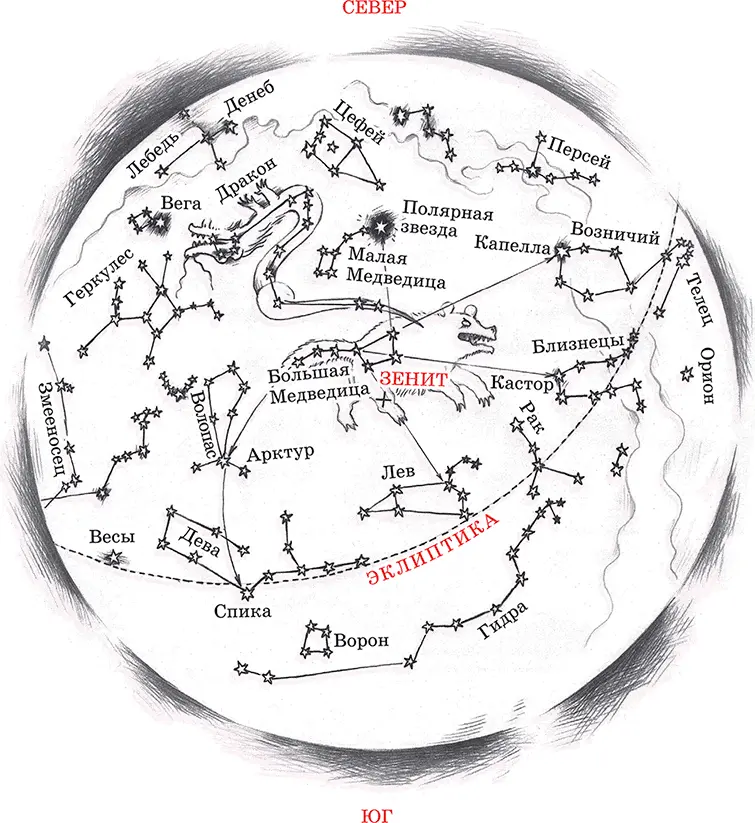 СЕВЕР
Денеб
Лебедь
Цефей
Персей
Дракон
Вега
Полярная
звезда
Возничий
Капелла
Малая
Медведица
Геркулес
Телец
Близнецы
Большая
Медведица
ЗЕНИТ
Кастор
Орион
Змееносец
Волопас
Рак
Арктур
Лев
Весы
Дева
ЭКЛИПТИКА
Спика
Гидра
Ворон
ЮГ